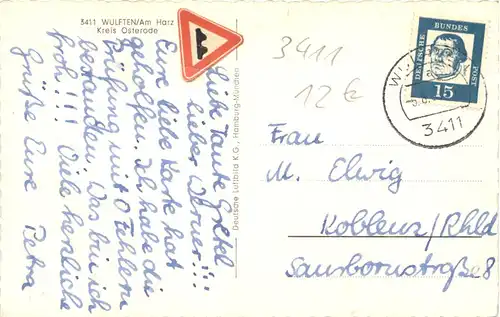 3411 WULFTEN/Am Harz
Kreis Osterode
Liebe Tante Gretel
lieber Werner!!!
Eure liebe Karte hat
geholfen. Ich habe die
Prüfung mit 0 Fehlern
bestanden. Das bin ich
froh!!! Viele herzliche
Grüße Eure Petra
Deutsche Luftbild K.G., Hamburg-München
3411
12 €
DEUTSCHE BUNDESPOST
15
3411
Frau
M. Elwig
Koblenz/Rhld
Saurbornstraße 8